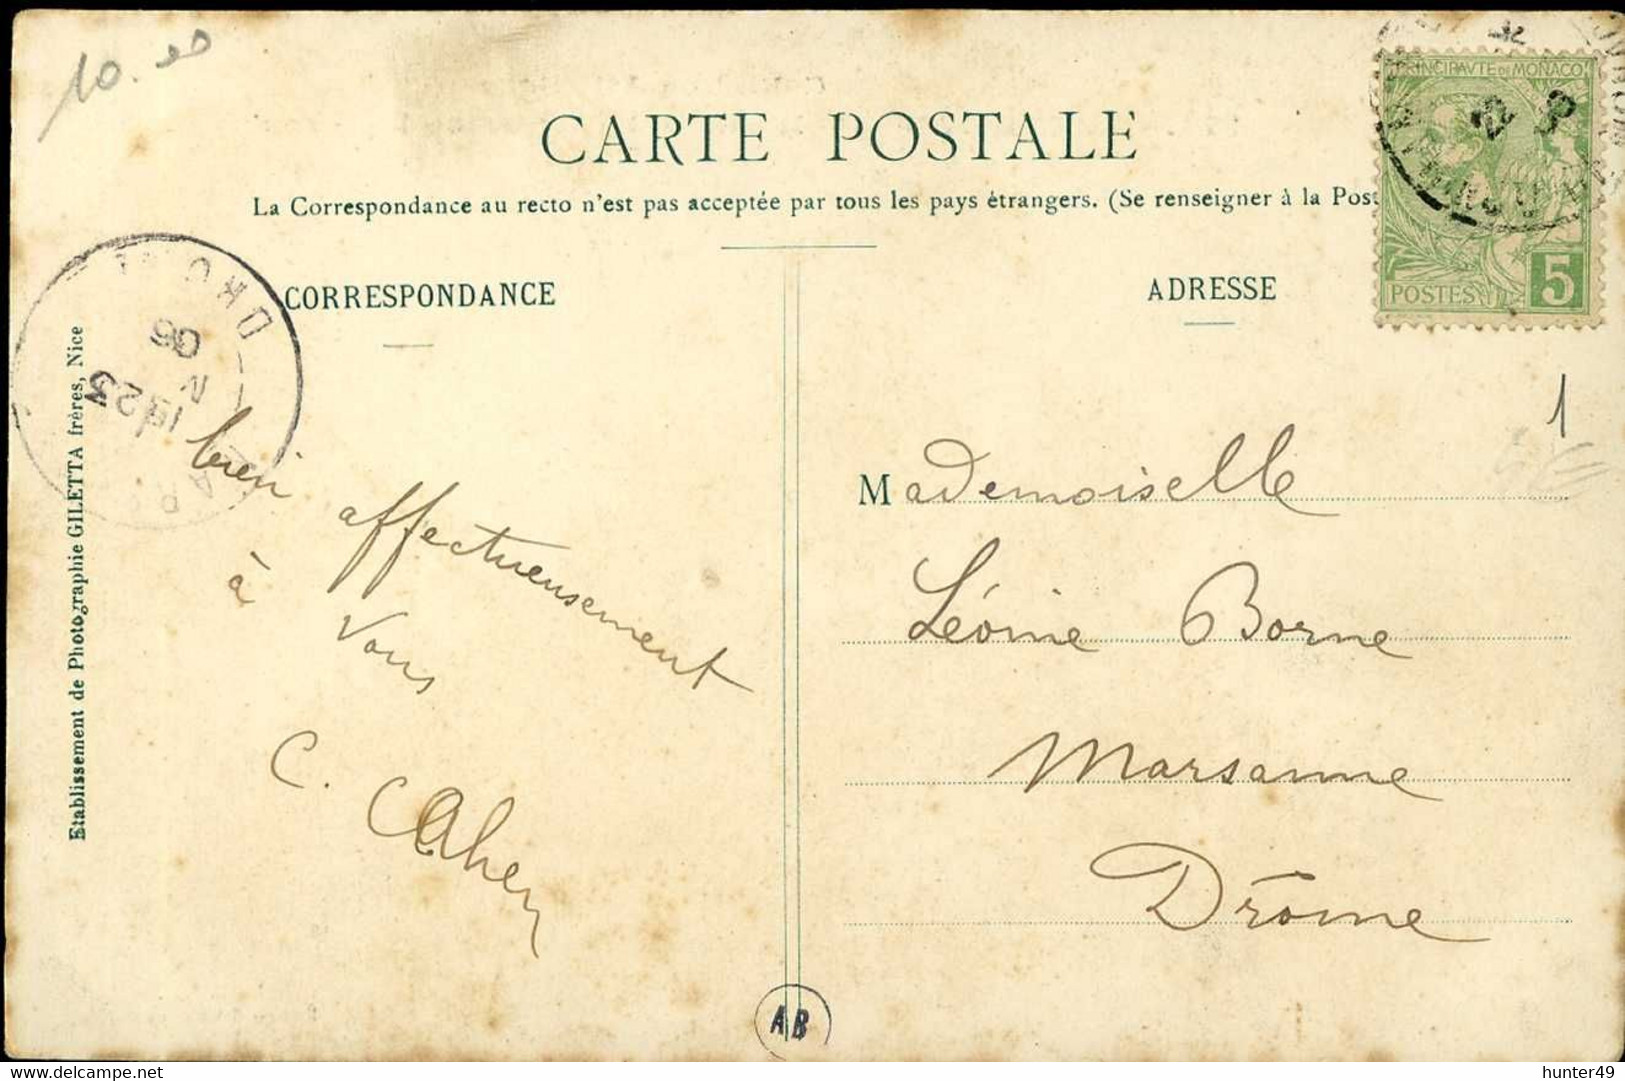 10.
CARTE POSTALE
La Correspondance au recto n'est pas acceptée par tous les pays étrangers. (Se renseigner à la Post
PRINCIPAVTE DE MONACO
POSTES 5
CORRESPONDANCE
ADRESSE
1
Etablissement de Photographie GILETTA frères, Nice
DRO
06
23
bien affectueusement
à vous
C. Cahen
Mademoiselle
Léonie Borne
Marsanne
Drôme
AB
hunter49